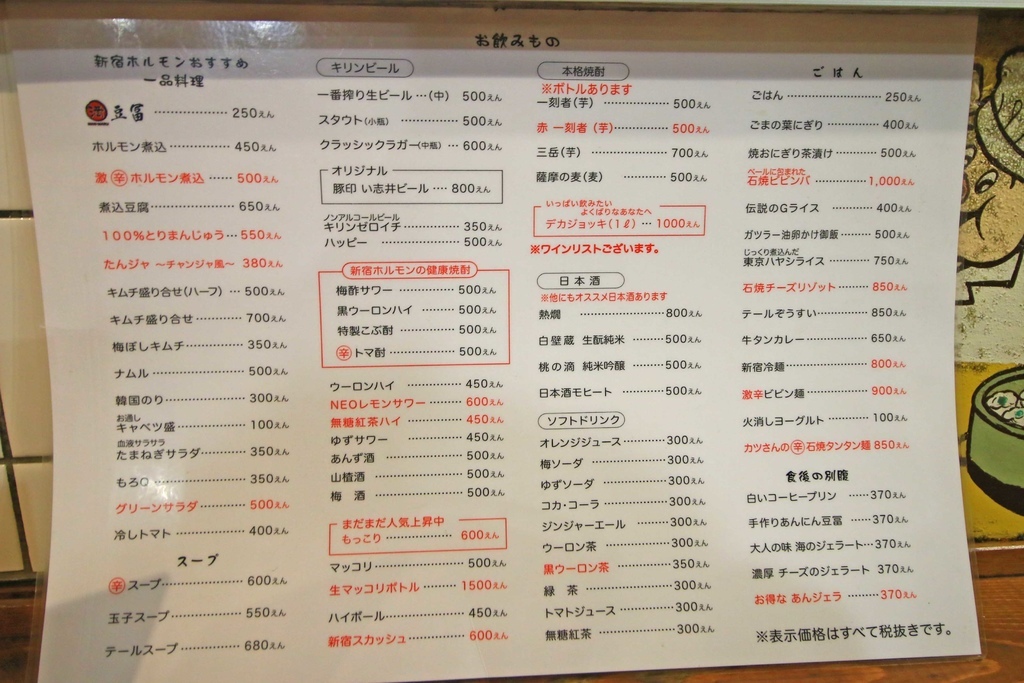 お飲みもの
新宿ホルモンおすすめ
一品料理
豆冨 ………… 250えん
ホルモン煮込 ………… 450えん
激辛ホルモン煮込 …… 500えん
煮込豆腐 ………… 650えん
100%とりまんじゅう… 550えん
たんジャ ～チャンジャ風～ 380えん
キムチ盛り合せ(ハーフ) … 500えん
キムチ盛り合せ ………… 700えん
梅ぼしキムチ ………… 350えん
ナムル ………… 500えん
韓国のり ………… 300えん
お通し
キャベツ盛 ………… 100えん
血液サラサラ
たまねぎサラダ ……… 350えん
もろQ ………… 350えん
グリーンサラダ ……… 500えん
冷しトマト ………… 400えん
スープ
辛スープ ………… 600えん
玉子スープ ………… 550えん
テールスープ ………… 680えん
キリンビール
一番搾り生ビール …(中) 500えん
スタウト(小瓶) ………… 500えん
クラッシックラガー(中瓶) … 600えん
オリジナル
豚印 い志井ビール …. 800えん
ノンアルコールビール
キリンゼロイチ ………… 350えん
ハッピー ………… 500えん
新宿ホルモンの健康焼酎
梅酢サワー ………… 500えん
黒ウーロンハイ ……… 500えん
特製こぶ酎 ………… 500えん
辛トマ酎 ………… 500えん
ウーロンハイ ………… 450えん
NEOレモンサワー …… 600えん
無糖紅茶ハイ ………… 450えん
ゆずサワー ………… 450えん
あんず酒 ………… 500えん
山楂酒 ………… 500えん
梅 酒 ………… 500えん
まだまだ人気上昇中
もっこり ………… 600えん
マッコリ ………… 500えん
生マッコリボトル …… 1500えん
ハイボール ………… 450えん
新宿スカッシュ ……… 600えん
本格焼酎
※ボトルあります
一刻者(芋) ………… 500えん
赤 一刻者 (芋)………… 500えん
三岳(芋) ………… 700えん
薩摩の麦(麦) ………… 500えん
いっぱい飲みたい
よくばりなあなたへ
デカジョッキ(1ℓ) … 1000えん
※ワインリストございます。
日本酒
※他にもオススメ日本酒あります
熱燗 ………… 800えん
白壁蔵 生酛純米 ……500えん
桃の滴 純米吟醸 ……500えん
日本酒モヒート ………500えん
ソフトドリンク
オレンジジュース………300えん
梅ソーダ ………… 300えん
ゆずソーダ ………… 300えん
コカ・コーラ ………… 300えん
ジンジャーエール ……300えん
ウーロン茶 ………… 300えん
黒ウーロン茶 ………… 350えん
緑 茶 ………… 300えん
トマトジュース ………300えん
無糖紅茶 ………… 300えん
ごはん
ごはん ………… 250えん
ごまの葉にぎり ……… 400えん
焼おにぎり茶漬け …… 500えん
ベールに包まれた
石焼ビビンバ ………… 1,000えん
伝説のGライス ……… 400えん
ガツラー油卵かけ御飯 …… 500えん
じっくり煮込んだ
東京ハヤシライス …… 750えん
石焼チーズリゾット …… 850えん
テールぞうすい ……… 850えん
牛タンカレー ………… 650えん
新宿冷麺 ………… 800えん
激辛ビビン麺 ………… 900えん
火消しヨーグルト …… 100えん
カツさんの辛石焼タンタン麺 850えん
食後の別腹
白いコーヒープリン ……370えん
手作りあんにん豆冨 ……370えん
大人の味 海のジェラート…370えん
濃厚 チーズのジェラート 370えん
お得な あんジェラ ……370えん
※表示価格はすべて税抜きです。